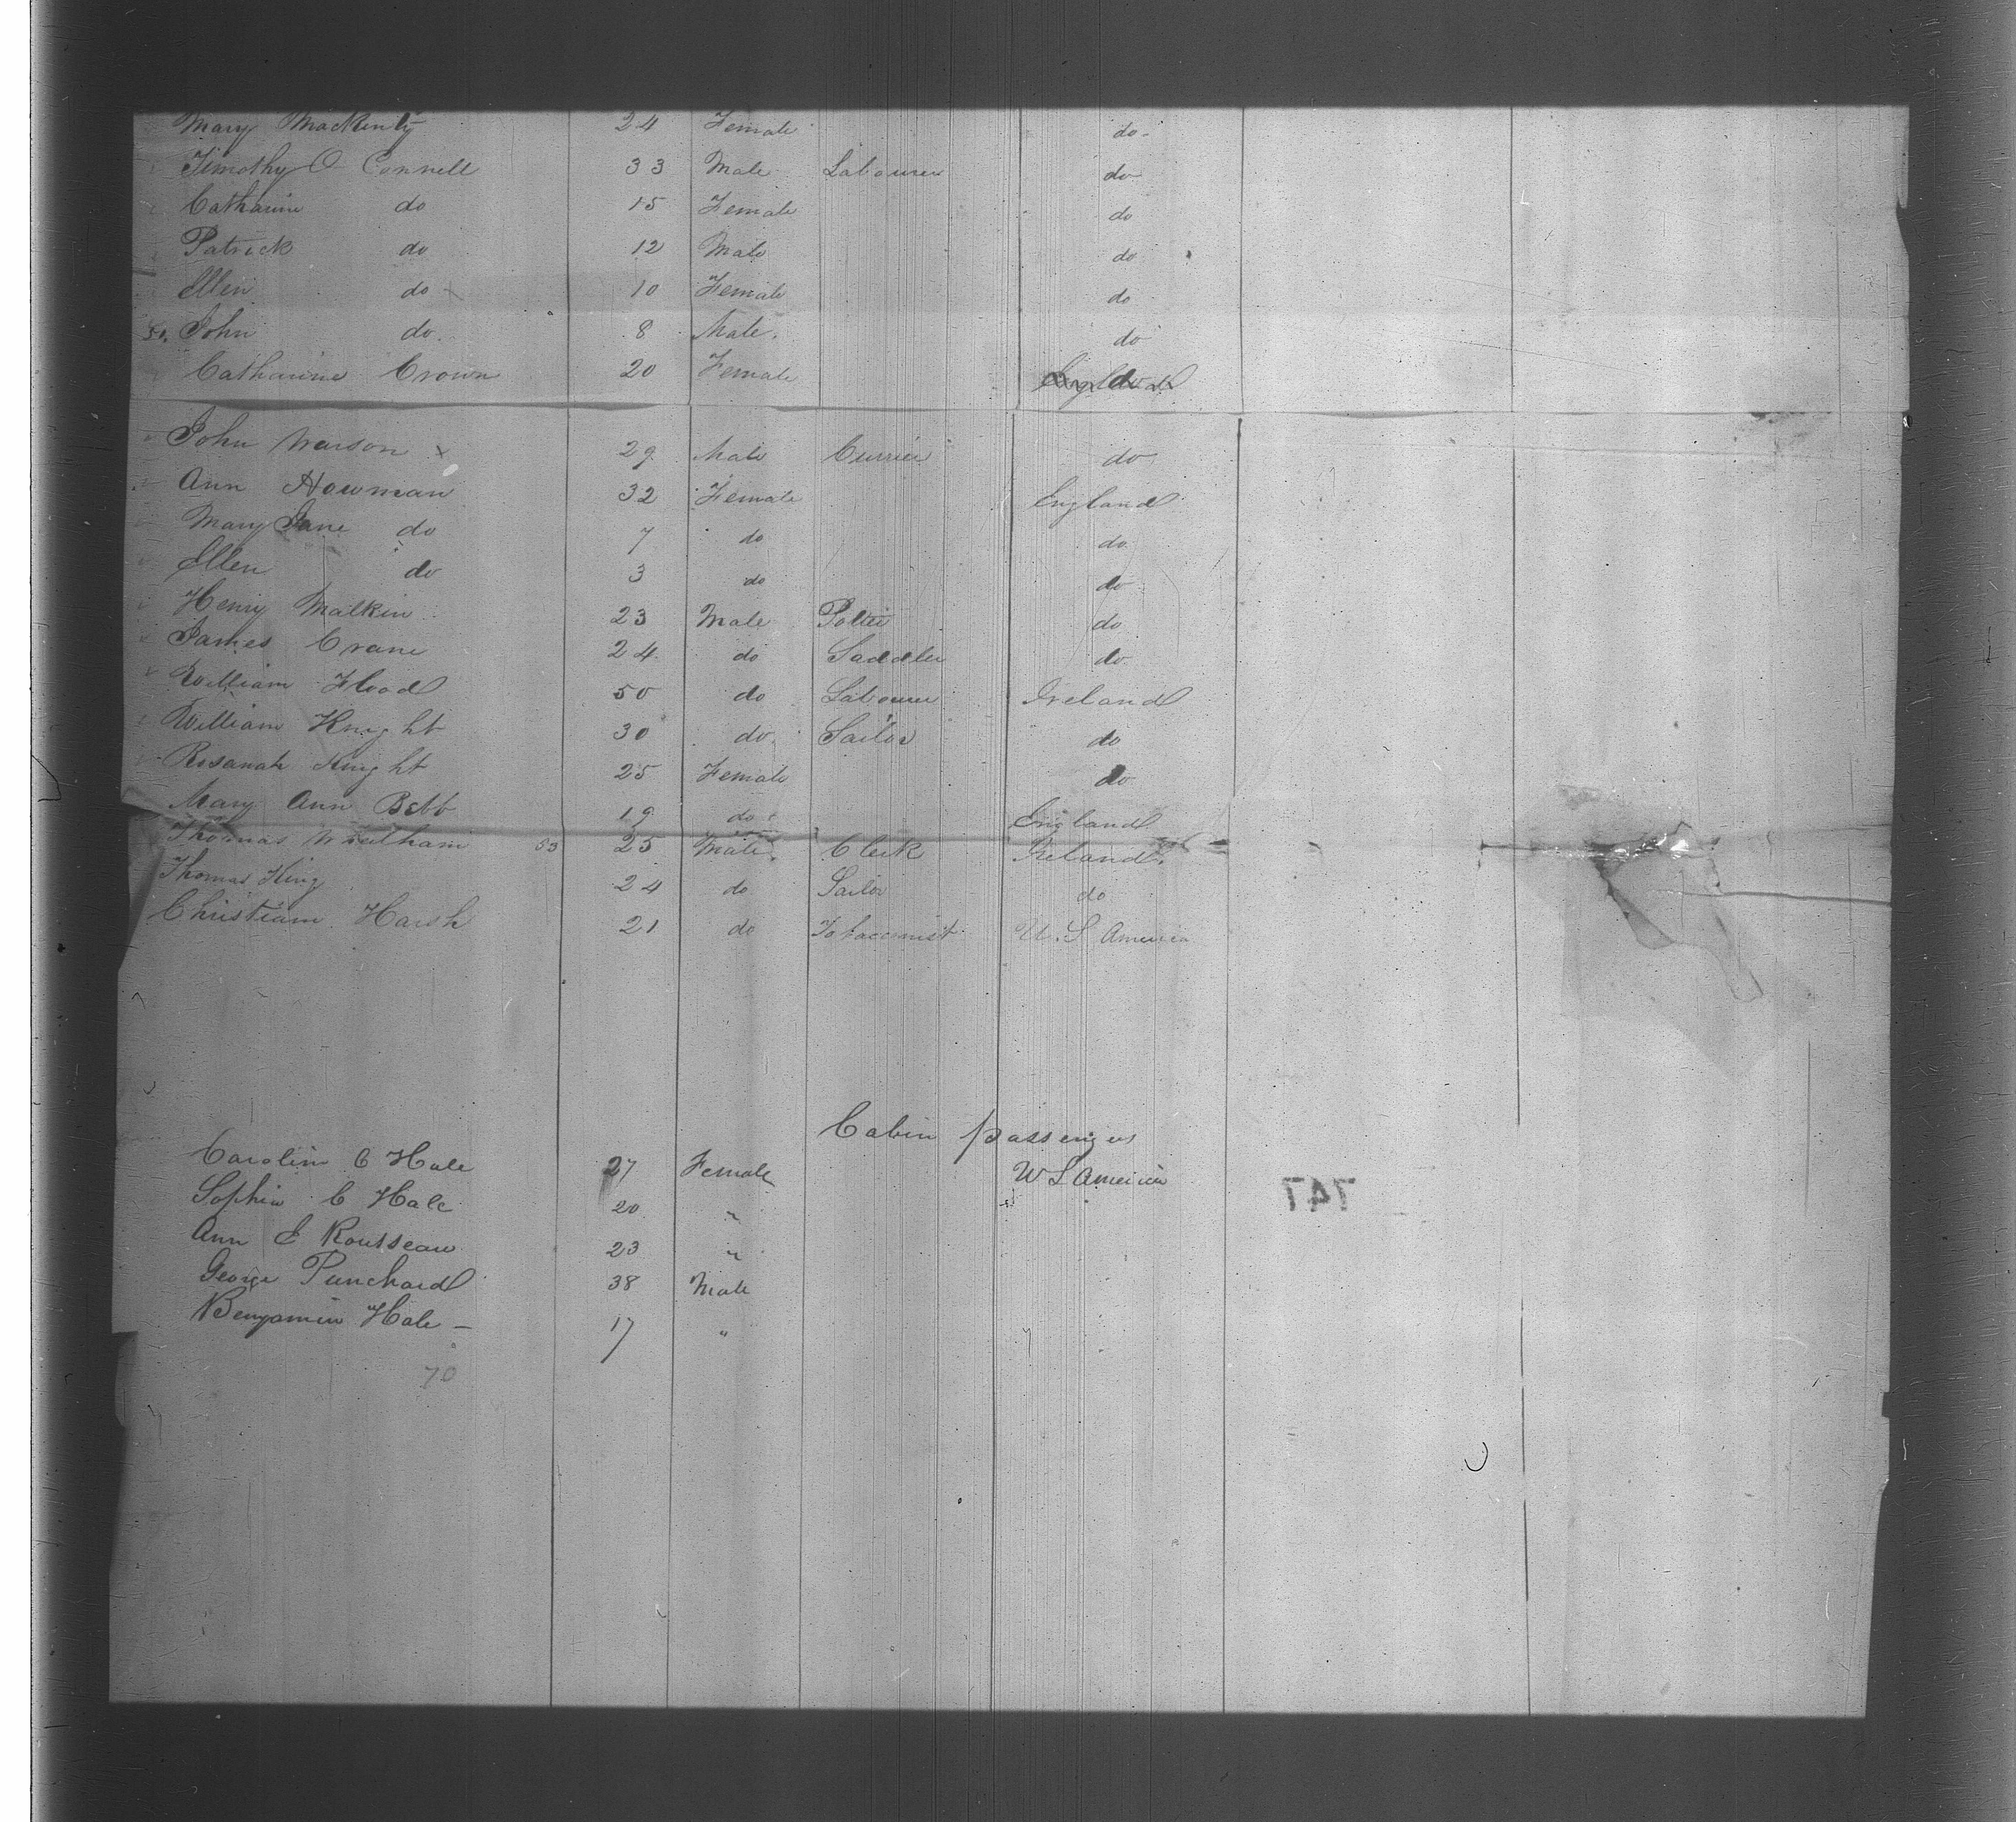 Mary Mackenty 24 Female do
Timothy O Connell 33 Male Labourer do
Catharine do 15 Female do
Patrick do 12 Male do
Ellen do 10 Female do
50. John do. 8 Male. do
Catharine Crown 20 Female do
John 29 Male Currier do
Ann Howman 32 Female England
Mary Jane do 7 do do
Ellen do 3 do do
Henry Malkin 23 Male Potter do
James Crane 24 do Saddler do
William Flood 50 do Labourer Ireland
William Knight 30 do. Sailor do
Rosanah Knight 25 Female do
Mary Ann Bebb 19 do England
Thomas 53 25 Male. Clerk Ireland.
Thomas King 24 do Sailor do
Christiam Harsh 21 do Tobacconist U.S America
Cabin passengers
Carolin C Hale 27 Female U S America
Sophia C Hale 20 "
Ann E Rousseau 23 "
George Punchard 38 Male
Benjamin Hale — 17 "
747
70